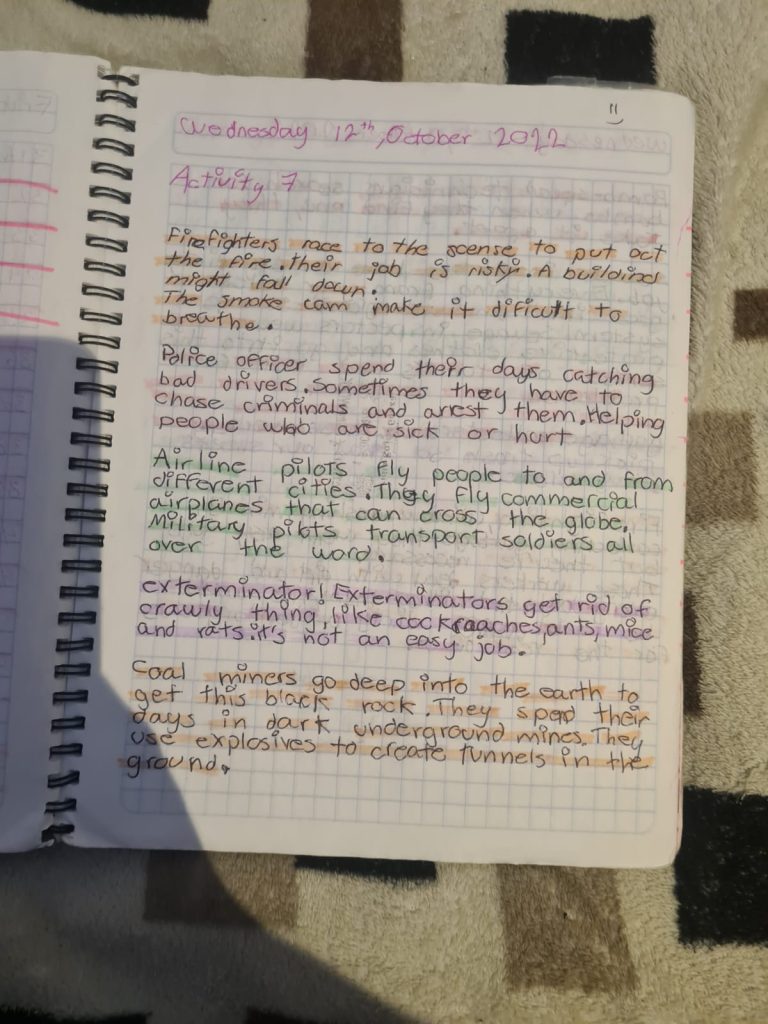 Wednesday 12th, October 2022
Activity 7
Firefighters race to the scense to put oct
the fire. their job is risky. A building
might fall down.
The smoke cam make it dificult to
breathe.
Police officer spend their days catching
bad drivers. Sometimes they have to
chase criminals and arest them. Helping
people who are sick or hurt
Airline pilots fly people to and from
different cities. They fly commercial
airplanes that can cross the globe.
Military pilots transport soldiers all
over the word.
exterminator! Exterminators get rid of
crawly thing, like cockraaches, ants, mice
and rats. it's not an easy job.
Coal miners go deep into the earth to
get this black rock. They spend their
days in dark underground mines. They
use explosives to create tunnels in the
ground.